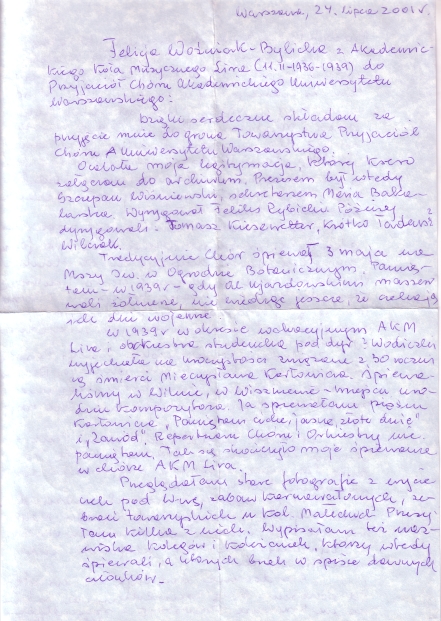 Warszawa, 24. lipca 2001 r.
Felicja Woźniak-Rybicka z Akademic-
kiego Koła Muzycznego Lira (11.II-1936-1939) do
Przyjaciół Chóru Akademickiego Uniwersytetu
Warszawskiego:
Dzięki serdeczne składam za
przyjęcie mnie do grona Towarzystwa Przyjaciół
Chóru A Uniwersytetu Warszawskiego.
Ocalała moja legitymacja, której ksero
załączam do archiwum. Prezesem był wtedy
Wiśniewski, sekretarzem Maria
Dyrygował Feliks Rybicki. Później
dyrygowali - Tomasz Kiesewetter, krótko Tadeusz
Tradycyjnie Chór śpiewał 3 maja na
Mszy Św. w Ogrodzie Botanicznym. Pamię-
tam - w 1939 r - gdy Al. Ujazdowskimi maszero-
wali żołnierze, nie wiedząc jeszcze, że czekają
ich dni wojenne.
W 1939 r w okresie wakacyjnym AKM
Lira, orkiestra studencka pod dyr. Wodiczki
wyjechała na uroczystości związane z 30 roczni-
cą śmierci Mieczysława Karłowicza. Śpiewa-
liśmy w Wilnie, w Wiszniewie - miejscu uro-
dzin kompozytora. Ja śpiewałam pieśni
Karłowicza „Pamiętam ciche, jasne, złote dnie"
i „Zawód". Repertuaru Chóru i Orkiestry nie
pamiętam. Tak się skończyło moje śpiewanie
w chórze AKM Lira.
Przeglądałam stare fotografie z wycie-
czek pod W-wę, zabaw karnawałowych, ze-
brań towarzyskich u kol. Przesy-
łam kilka z nich. Wypisałam też naz-
wiska kolegów i koleżanek, którzy wtedy
śpiewali, a których brak w spisie dawnych
członków.